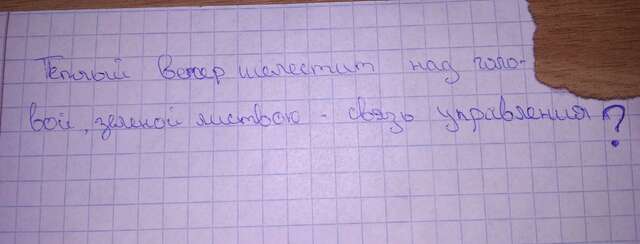 Теплый ветер шелестит над голо-
вой, зеленой листвою - связь управления ?